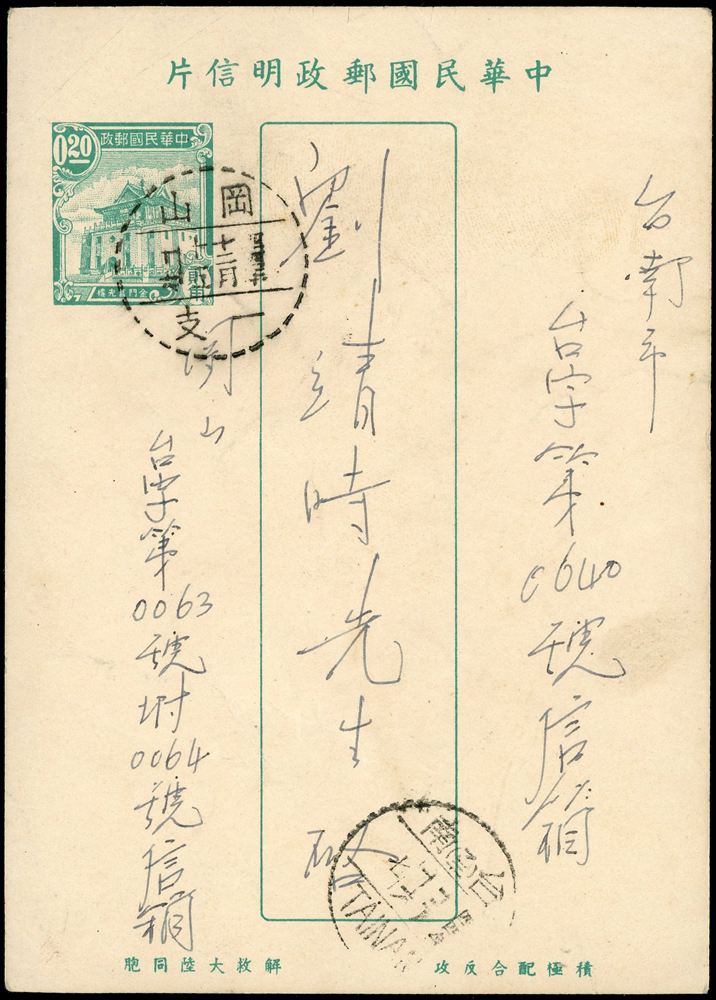 中華民國郵政明信片
中華民國郵政
0.20
金門莒光樓
岡山
十二月
支
台南市
台字第0640號信箱
劉靖時先生
啟
岡山
台字第0063號附0064號信箱
台南
TAINAN
積極配合反攻
解救大陸同胞